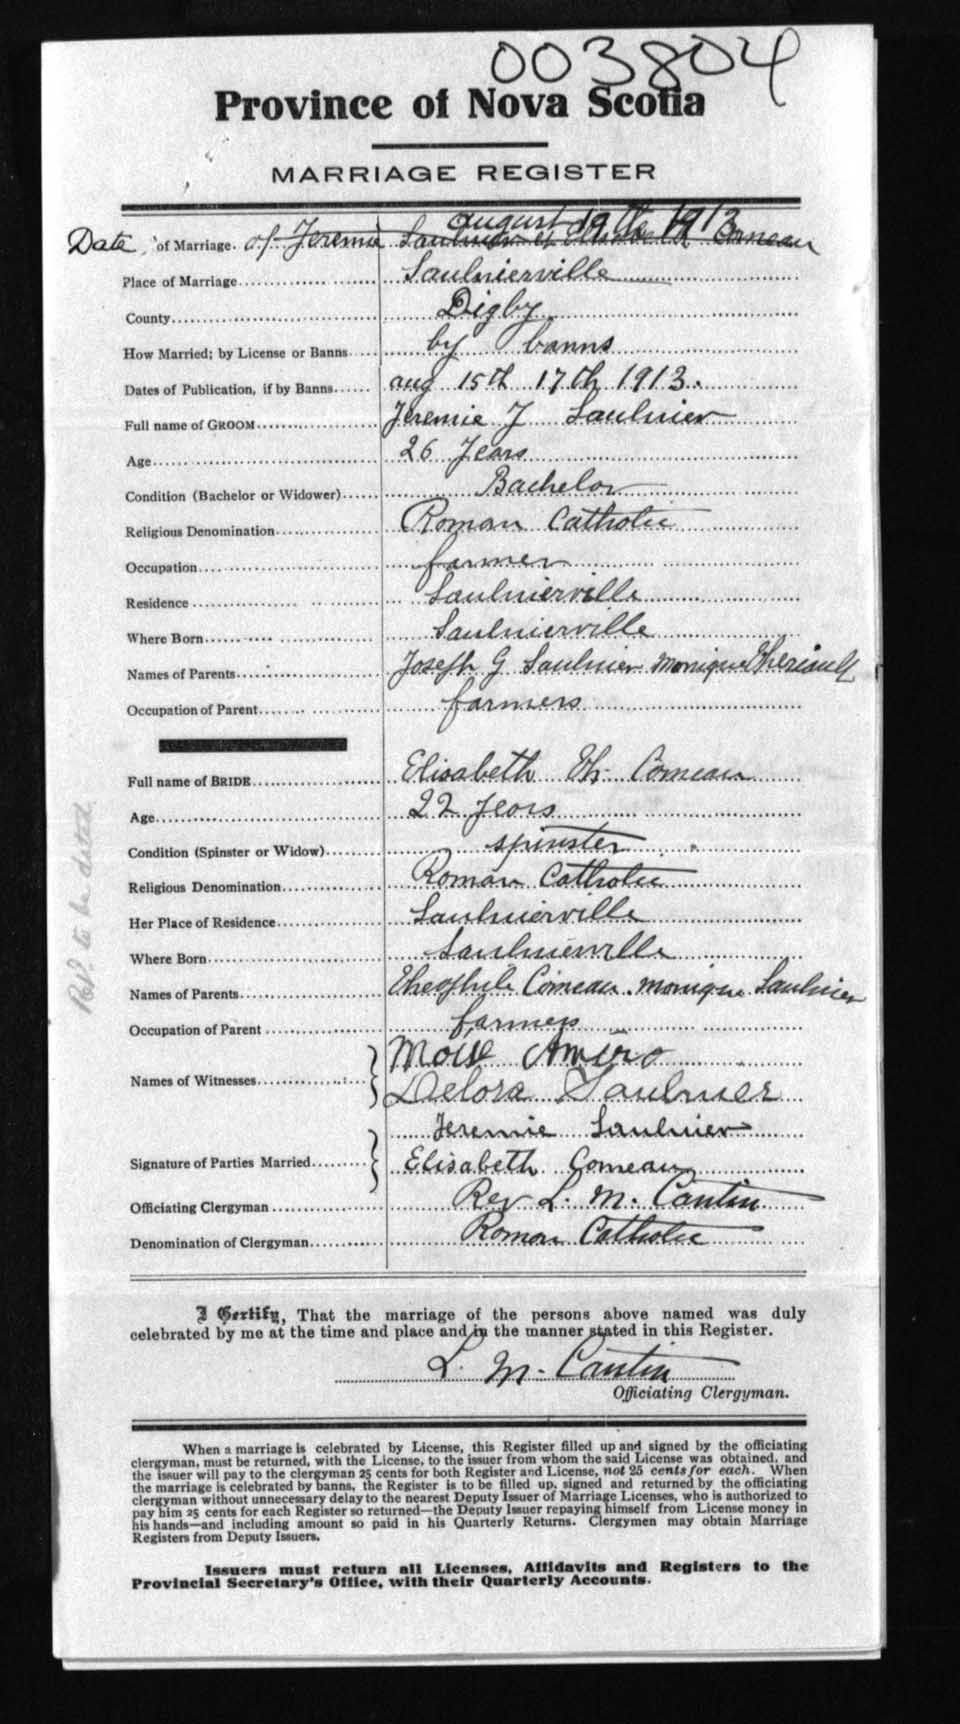 003804
Province of Nova Scotia
MARRIAGE REGISTER
august 19th 1913
Date of Marriage. of Jeremie Saulnier et Elisabeth Comeau
Place of Marriage Saulnierville
County Digby
How Married; by License or Banns by banns
Dates of Publication, if by Banns aug 15th 17th 1913.
Full name of GROOM Jeremie J Saulnier
Age 26 Years
Condition (Bachelor or Widower) Bachelor
Religious Denomination Roman Catholic
Occupation farmer
Residence Saulnierville
Where Born Saulnierville
Names of Parents Joseph G Saulnier monique Theriault
Occupation of Parent farmers
Full name of BRIDE Elisabeth Th. Comeau
Age 22 Years
Condition (Spinster or Widow) spinster
Religious Denomination Roman Catholic
Her Place of Residence Saulnierville
Where Born Saulnierville
Names of Parents Theophile Comeau. monique Saulnier
Occupation of Parent farmers
Names of Witnesses Moise Amiro
Delora Saulnier
Jeremie Saulnier
Signature of Parties Married Elisabeth Comeau
Officiating Clergyman Rev L. M. Cantin
Denomination of Clergyman Roman Catholic
to be dated
I Certify, That the marriage of the persons above named was duly
celebrated by me at the time and place and in the manner stated in this Register.
L. M. Cantin
Officiating Clergyman.
When a marriage is celebrated by License, this Register filled up and signed by the officiating
clergyman, must be returned, with the License, to the issuer from whom the said License was obtained, and
the issuer will pay to the clergyman 25 cents for both Register and License, not 25 cents for each. When
the marriage is celebrated by banns, the Register is to be filled up, signed and returned by the officiating
clergyman without unnecessary delay to the nearest Deputy Issuer of Marriage Licenses, who is authorized to
pay him 25 cents for each Register so returned—the Deputy Issuer repaying himself from License money in
his hands—and including amount so paid in his Quarterly Returns. Clergymen may obtain Marriage
Registers from Deputy Issuers.
Issuers must return all Licenses, Affidavits and Registers to the
Provincial Secretary's Office, with their Quarterly Accounts.